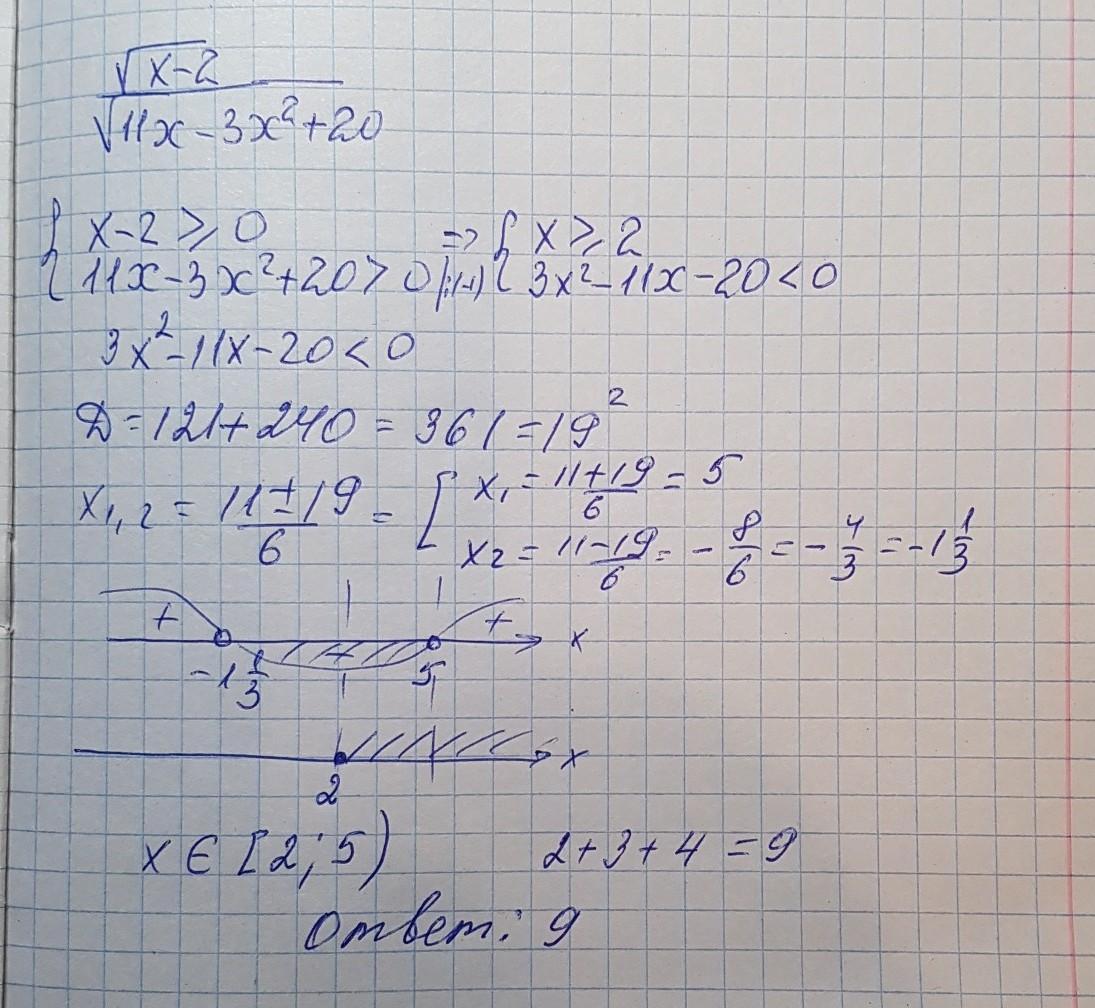 √x-2
√11x-3x²+20
{ x-2 ≥ 0 => { x ≥ 2
{ 11x-3x²+20 > 0 |:(-1) { 3x²-11x-20 < 0
3x²-11x-20 < 0
D = 121+240 = 361 = 19²
x₁,₂ = 11±19/6 = [ x₁ = 11+19/6 = 5
x₂ = 11-19/6 = -8/6 = -4/3 = -1 1/3
+ + x
-1 1/3 5
x
2
x ∈ [2; 5) 2+3+4 = 9
Ответ: 9